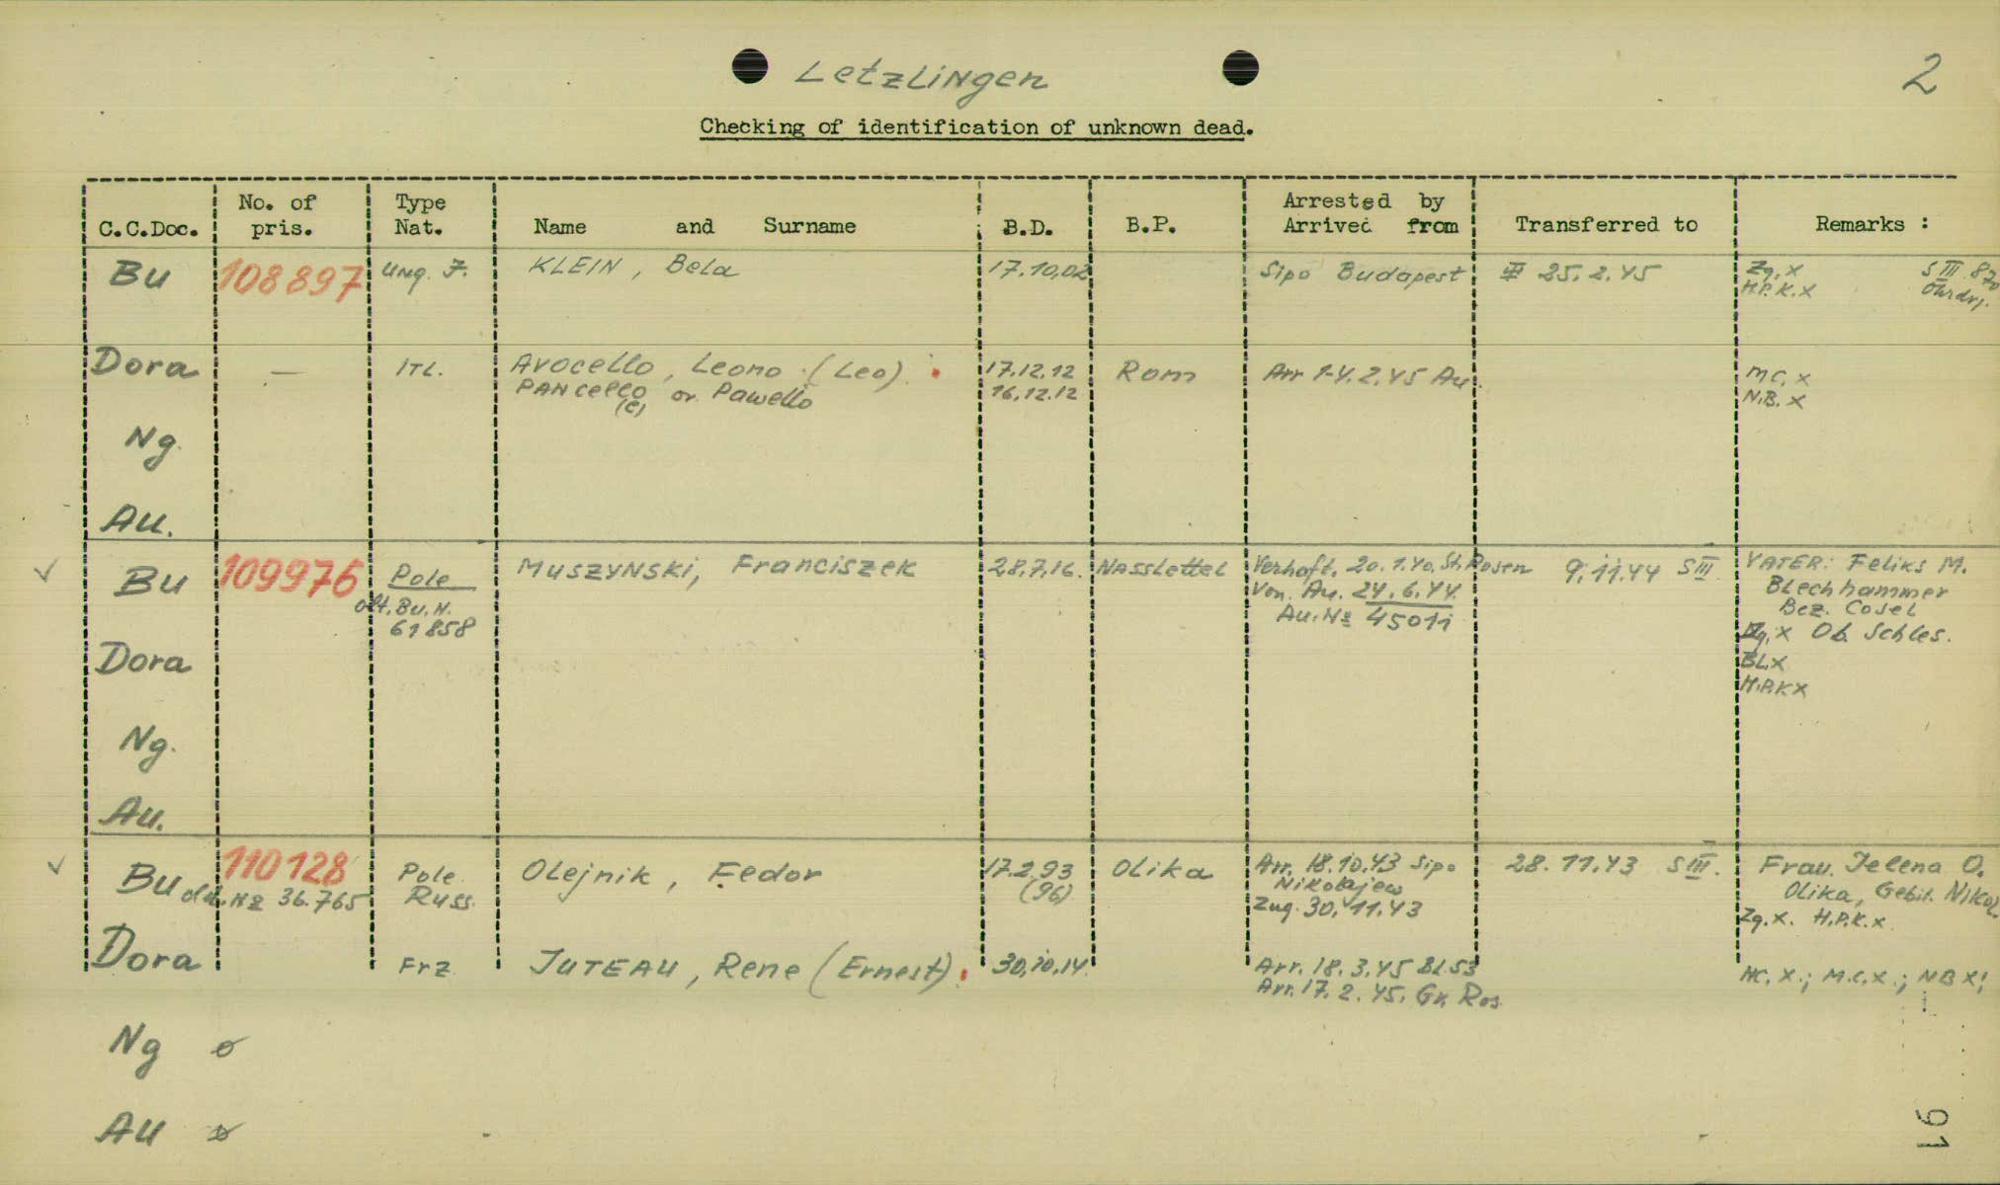 Letzlingen
2
Checking of identification of unknown dead.
C.C.Doc. No. of pris. Type Nat. Name and Surname B.D. B.P. Arrested by Arrived from Transferred to Remarks :
Bu 108897 Ung. J. KLEIN, Bela 17.10.02 Sipo Budapest 25.2.45 Zg.X S III 870
H.P.K.X Ohrdr.
Dora — ITL. Avocello, Leono (Leo). 17.12.12 Rom Arr 14.2.45 Au. MC.X
PANcello or Pawello 16.12.12 N.B.X
(e)
Ng.
Au.
Bu 109976 Pole MUSZYNSKi, Franciszek 28.7.16. NASSlettel Verhaft. 20.1.40. St. Posen 9.11.44 S III VATER: Feliks M.
alt. Bu. N. Von. Au. 24.6.44. Blechhammer
61858 Au. No 45011 Bez. Cosel
Zg.X Ob. Schles.
Dora BL.X
H.P.K X
Ng.
Au.
Bu 110128 Pole Olejnik, Fedor 17.2.93 Olika Arr. 18.10.43 Sipo 28.11.43 S III. Frau. Jelena O.
old. No 36.765 Russ. (96) Nikolajew Olika, Gebit. Nikol.
Zug. 30.11.43 Zg.X. H.P.K.X
Dora Frz JUTEAU, Rene (Ernest). 30.10.14. Arr. 18.3.45 Bl.53 HC.X.; M.C.X.; NB X;
Arr. 17.2.45. Gr. Ros.
Ng ø
Au ø
91